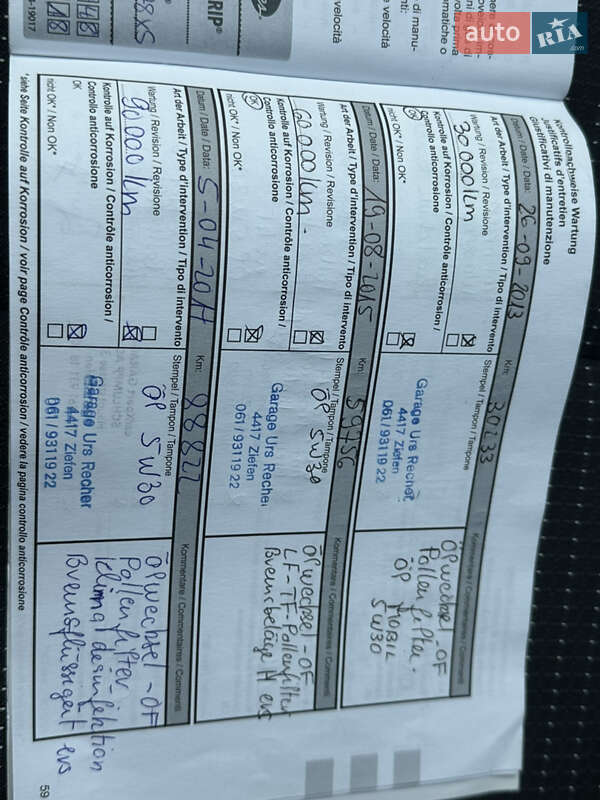 auto RIA.com
Kontrollnachweise Wartung
Justificatifs d'entretien
Giustificativi di manutenzione
Datum / Date / Data: 26-09-2013 Km: 30233
Art der Arbeit / Type d'intervention / Tipo di intervento
Stempel / Tampon / Tampone
Kommentare / Commentaires / Commenti
Wartung / Revision / Revisione
30000Km
Kontrolle auf Korrosion / Contrôle anticorrosion /
Controllo anticorrosione
OK
nicht OK* / Non OK*
Garage Urs Recher
4417 Ziefen
061/931 19 22
Ölwechsel - OF
Pollenfilter.
ÖP MOBIL
5W30
Datum / Date / Data: 19-08-2015 Km: 59756
Art der Arbeit / Type d'intervention / Tipo di intervento
Stempel / Tampon / Tampone
Kommentare / Commentaires / Commenti
Wartung / Revision / Revisione
60000Km.
Kontrolle auf Korrosion / Contrôle anticorrosion /
Controllo anticorrosione
OK
nicht OK* / Non OK*
ÖP 5W30
Garage Urs Recher
4417 Ziefen
061/931 19 22
Ölwechsel - OF
LF-TF-Pollenfilter
Bremsbeläge H ers
Datum / Date / Data: 5-04-2017 Km: 88822
Art der Arbeit / Type d'intervention / Tipo di intervento
Stempel / Tampon / Tampone
Kommentare / Commentaires / Commenti
Wartung / Revision / Revisione
90000Km
Kontrolle auf Korrosion / Contrôle anticorrosion /
Controllo anticorrosione
OK
nicht OK* / Non OK*
ÖP 5W30
Garage Urs Recher
4417 Ziefen
061/931 19 22
Ölwechsel - OF
Pollenfilter
Klima desinfektion
Bremsflüssigkeit ers
*siehe Seite Kontrolle auf Korrosion / voir page Contrôle anticorrosion / vedere la pagina controllo anticorrosione
59